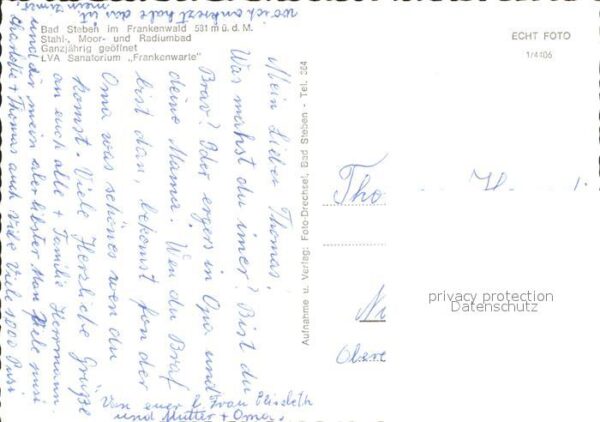 Bad Steben im Frankenwald 531 m ü. d. M.
Stahl-, Moor- und Radiumbad
Ganzjährig geöffnet
LVA Sanatorium „Frankenwarte"
ECHT FOTO
1/4406
Mein Lieber Thomas,
Was machst du imer? Bist du
Brav? Oder ergers in Opa und
deine Mama. Wen du Braf
bist dan, bekomst fon der
Oma was schönes wen du
komst. Viele Herzliche Grüße
an euch alle + Familie Herrmann.
und dir mein aler libster Man Viele
Charlotte + Thomas auch Vile Viele 1000 Pusi
wo ich ankrezt habe das ist
mein zimer
Von euer l. Frau Elisabeth
und Mutter + Oma
Aufnahme u. Verlag: Foto-Drechsel, Bad Steben - Tel. 364
Tho
H
Obere
privacy protection
Datenschutz